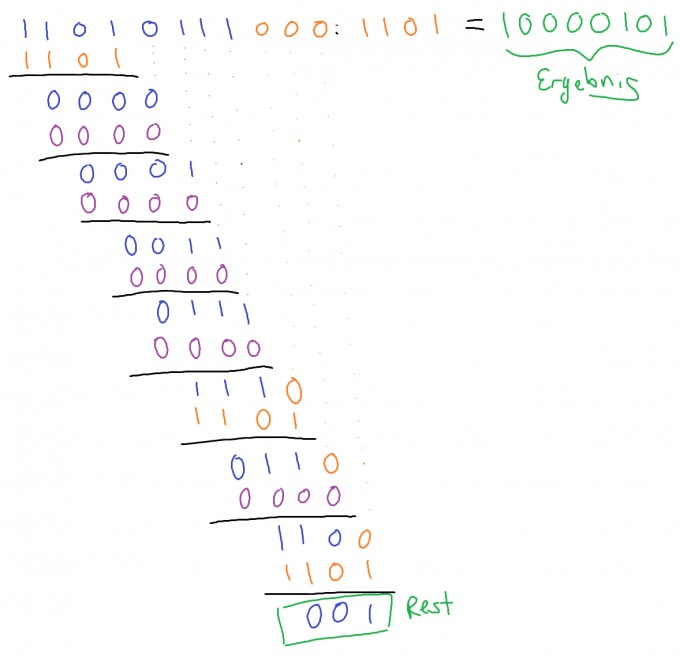 11010111000:1101 = 10000101
1101
Ergebnis
0000
0000
0001
0000
0011
0000
0111
0000
1110
1101
0110
0000
1100
1101
001 Rest